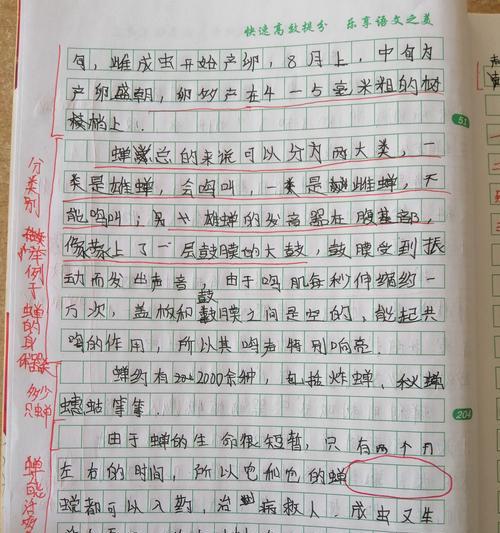 快速高效提分 乐享语文之美
旬，雌成虫开始产卵，8月上，中旬为
产卵盛期，卵多产在4—5毫米粗的树
梢上.
51
蝉总的来说可以分为两大类，一
类是雄蝉，会鸣叫，一类是雌蝉，不
能鸣叫；另外雄蝉的发音器在腹基部，
像蒙上了一层鼓膜的大鼓，鼓膜受到振
动而发出声音，由于鸣肌每秒伸缩约一
万次，盖板和鼓膜之间是空的，能起共
鸣的作用，所以其鸣声特别响亮.
蝉约有2000余种，包括炸蝉、秋蝉
蟪蛄等等.
204
由于蝉的生命很短暂，只有两个月
左右的时间，所以它和它的蝉
蜕都可以入药，治病救人.成虫又生
分类别
举例子
蝉的身
多少
只蝉